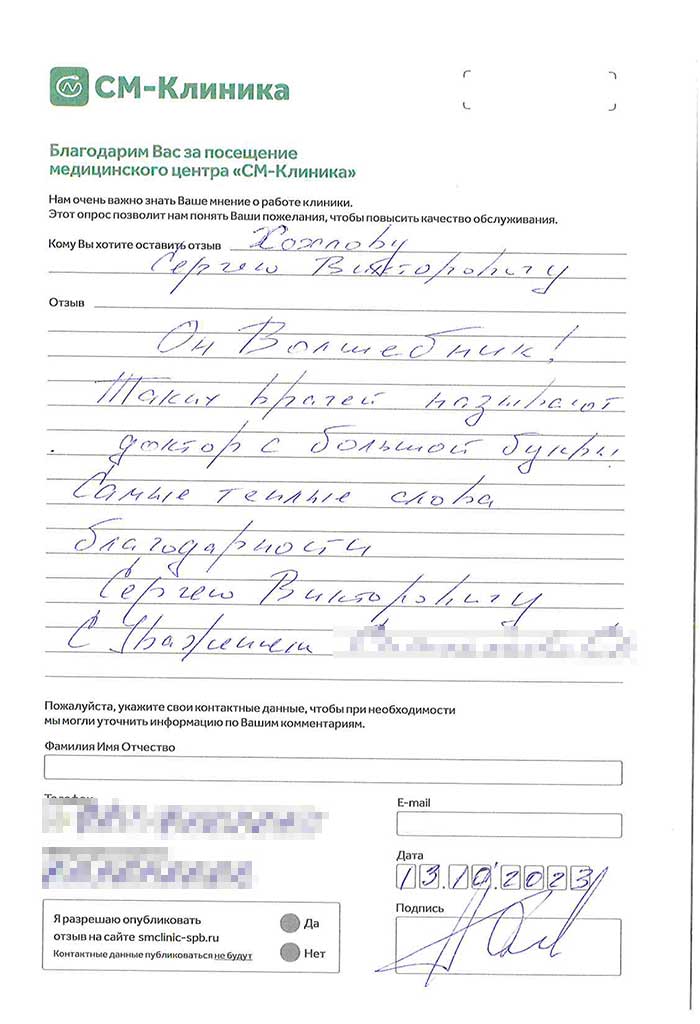 СМ-Клиника
Благодарим Вас за посещение
медицинского центра «СМ-Клиника»
Нам очень важно знать Ваше мнение о работе клиники.
Этот опрос позволит нам понять Ваши пожелания, чтобы повысить качество обслуживания.
Кому Вы хотите оставить отзыв Хохлову
Сергею Викторовичу
Отзыв
Он Волшебник!
Таких врачей называют
доктор с большой буквы!
Самые теплые слова
благодарности
Сергею Викторовичу
С Уважением
Пожалуйста, укажите свои контактные данные, чтобы при необходимости
мы могли уточнить информацию по Вашим комментариям.
Фамилия Имя Отчество
E-mail
Дата
13.10.2023
Подпись
Я разрешаю опубликовать
отзыв на сайте smclinic-spb.ru
Контактные данные публиковаться не будут
Да
Нет